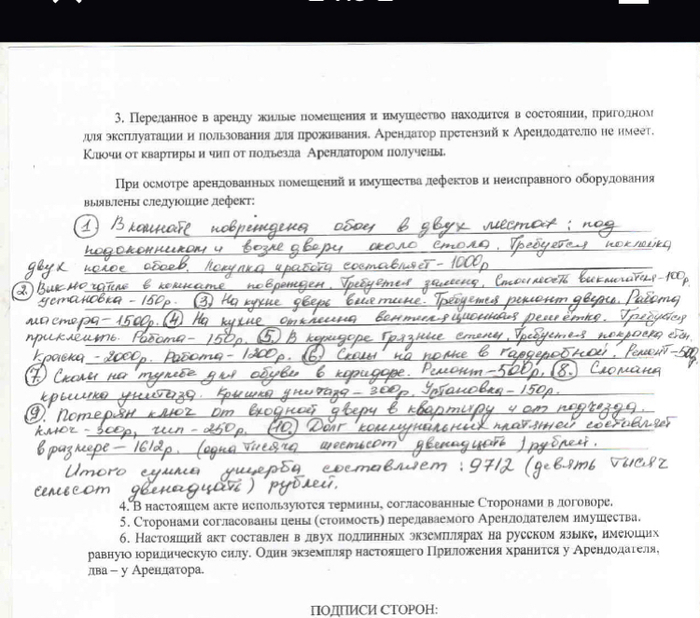 3. Переданное в аренду жилые помещения и имущество находится в состоянии, пригодном
для эксплуатации и пользования для проживания. Арендатор претензий к Арендодателю не имеет.
Ключи от квартиры и чип от подъезда Арендатором получены.
При осмотре арендованных помещений и имущества дефектов и неисправного оборудования
выявлены следующие дефект:
1 В комнате повреждена обои в двух местах: под
подоконником и возле двери около стола. Требуется поклейка
двух полос обоев. Покупка и работа составляет - 1000р
2. Выключатель в комнате поврежден. Требуется замена. Стоимость выключателя - 100р,
установка - 150р. 3 На кухне дверь вмятине. Требуется ремонт двери. Работа
мастера - 1500р. 4. На кухне отклеина вентиляционная решётка. Требуется
приклеить. Работа - 150р. 5. В коридоре грязные стены. Требуется покраска стен.
Краска - 2000р. Работа - 1200р. 6 Сколы на полке в гардеробной. Ремонт - 500р
7. Сколы на тумбе для обуви в коридоре. Ремонт - 500р. 8. Сломана
крышка унитаза. Крышка унитаза - 300р. Установка - 150р.
9. Потерян ключ от входной двери в квартиру и от подъезда.
Ключ - 300р, чип - 250р. 10. Долг коммунальных платежей составляет
в размере - 1612р. (одна тысяча шестьсот двенадцать) рублей.
Итого сумма ущерба составляет: 9712 (девять тысяч
семьсот двенадцать) рублей.
4. В настоящем акте используются термины, согласованные Сторонами в договоре.
5. Сторонами согласованы цены (стоимость) передаваемого Арендодателем имущества.
6. Настоящий акт составлен в двух подлинных экземплярах на русском языке, имеющих
равную юридическую силу. Один экземпляр настоящего Приложения хранится у Арендодателя,
два – у Арендатора.
ПОДПИСИ СТОРОН: